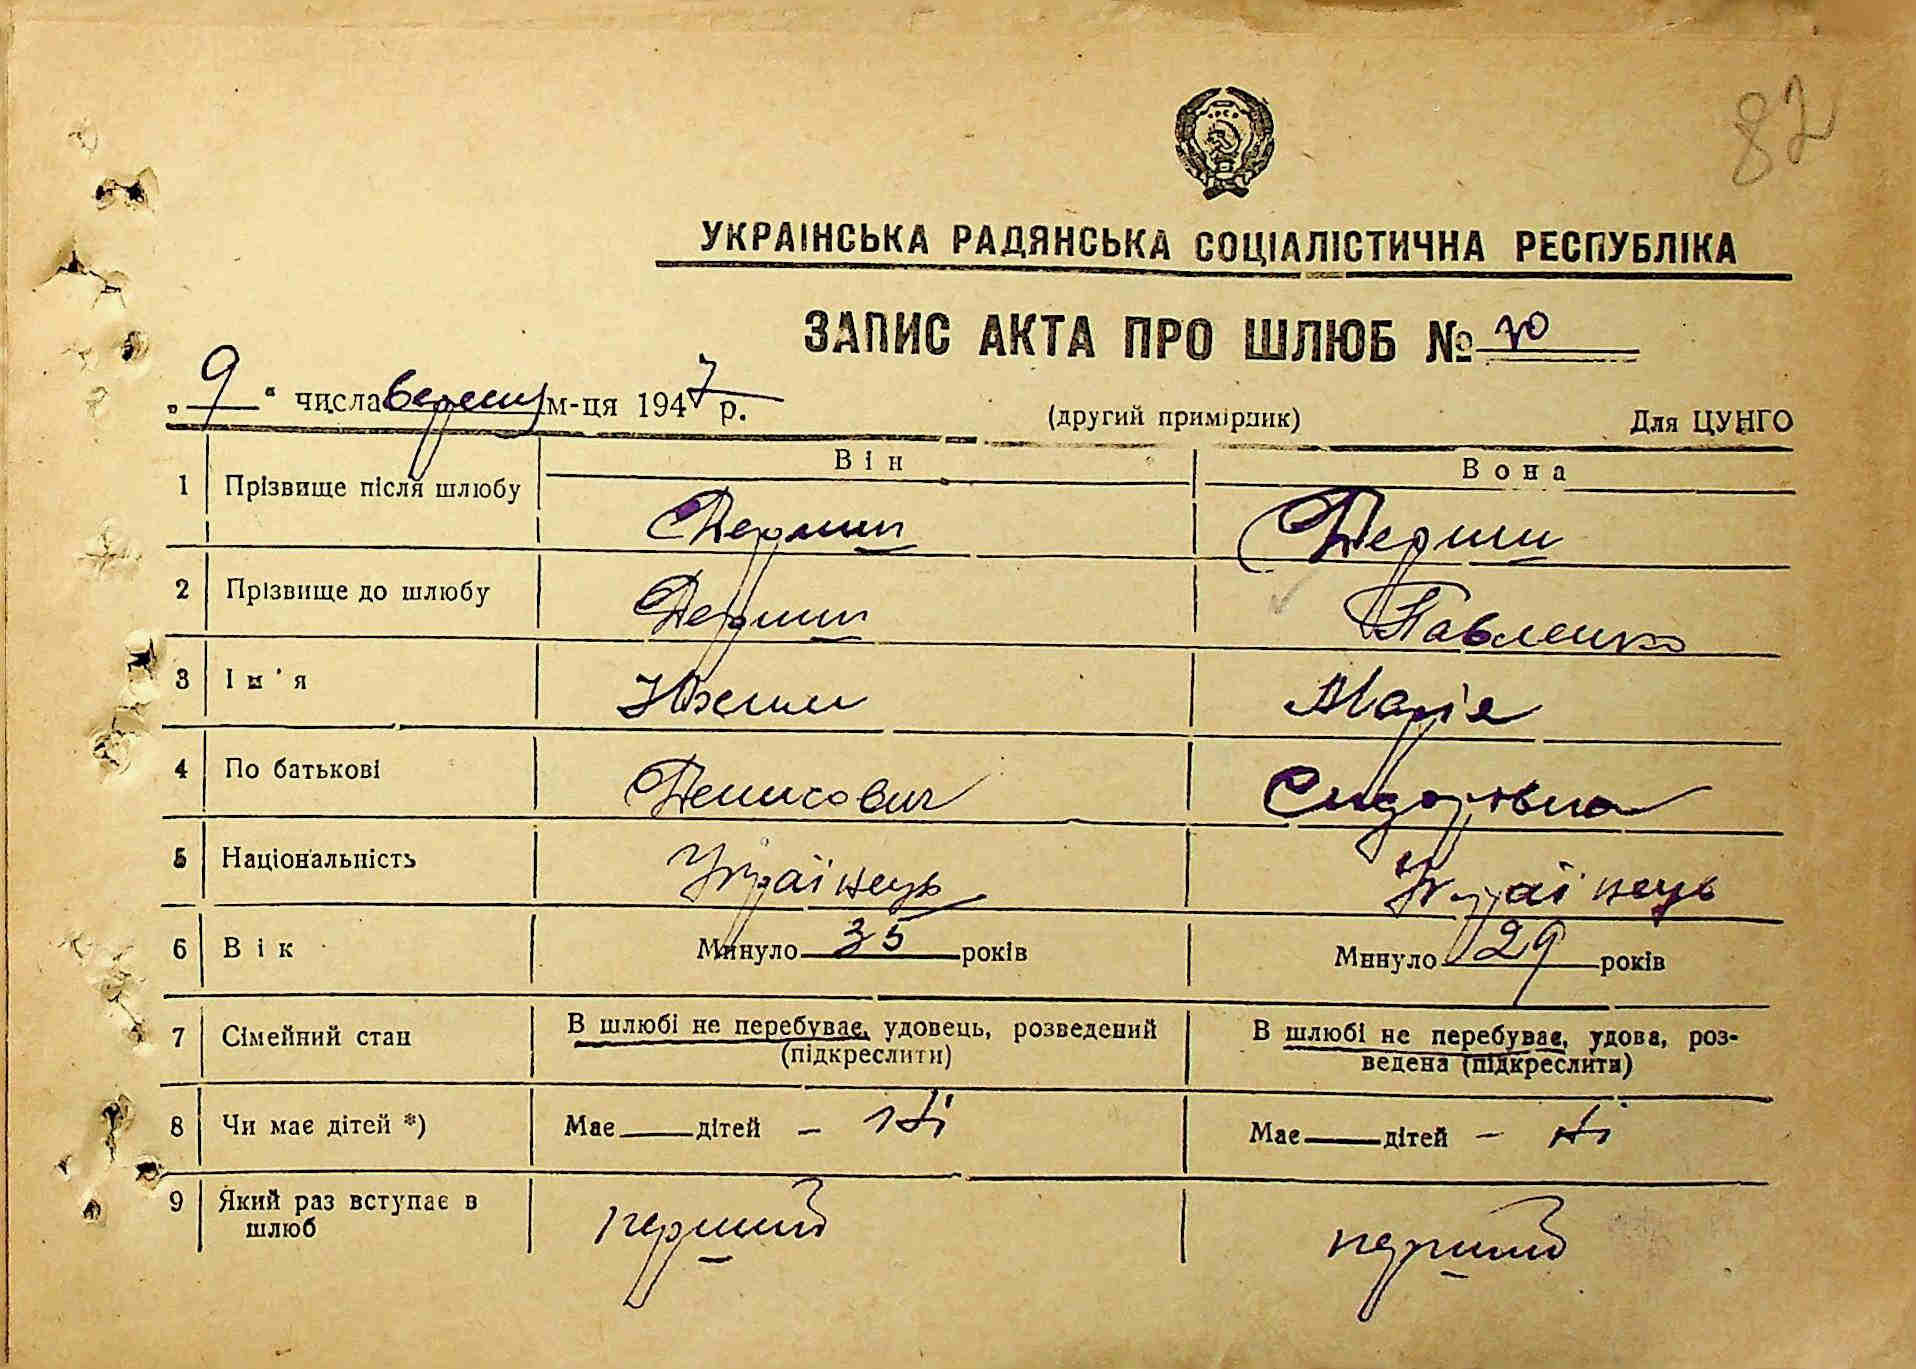 82
УКРАІНСЬКА РАДЯНСЬКА СОЦІАЛІСТИЧНА РЕСПУБЛІКА
ЗАПИС АКТА ПРО ШЛЮБ №
„ 9 “ числа вересня м-ця 1947 р. (другий примірник) Для ЦУНГО
Він Вона
1 Прізвище після шлюбу
2 Прізвище до шлюбу Павленко
3 Ім'я Марія
4 По батькові Денисович Сидоровна
5 Національність Українець Українець
6 Вік Минуло 35 років Минуло 29 років
7 Сімейний стан В шлюбі не перебуває, удовець, розведений В шлюбі не перебуває, удова, роз-
(підкреслити) ведена (підкреслити)
8 Чи має дітей *) Має дітей – ні Має дітей – ні
9 Який раз вступає в перший перший
шлюб